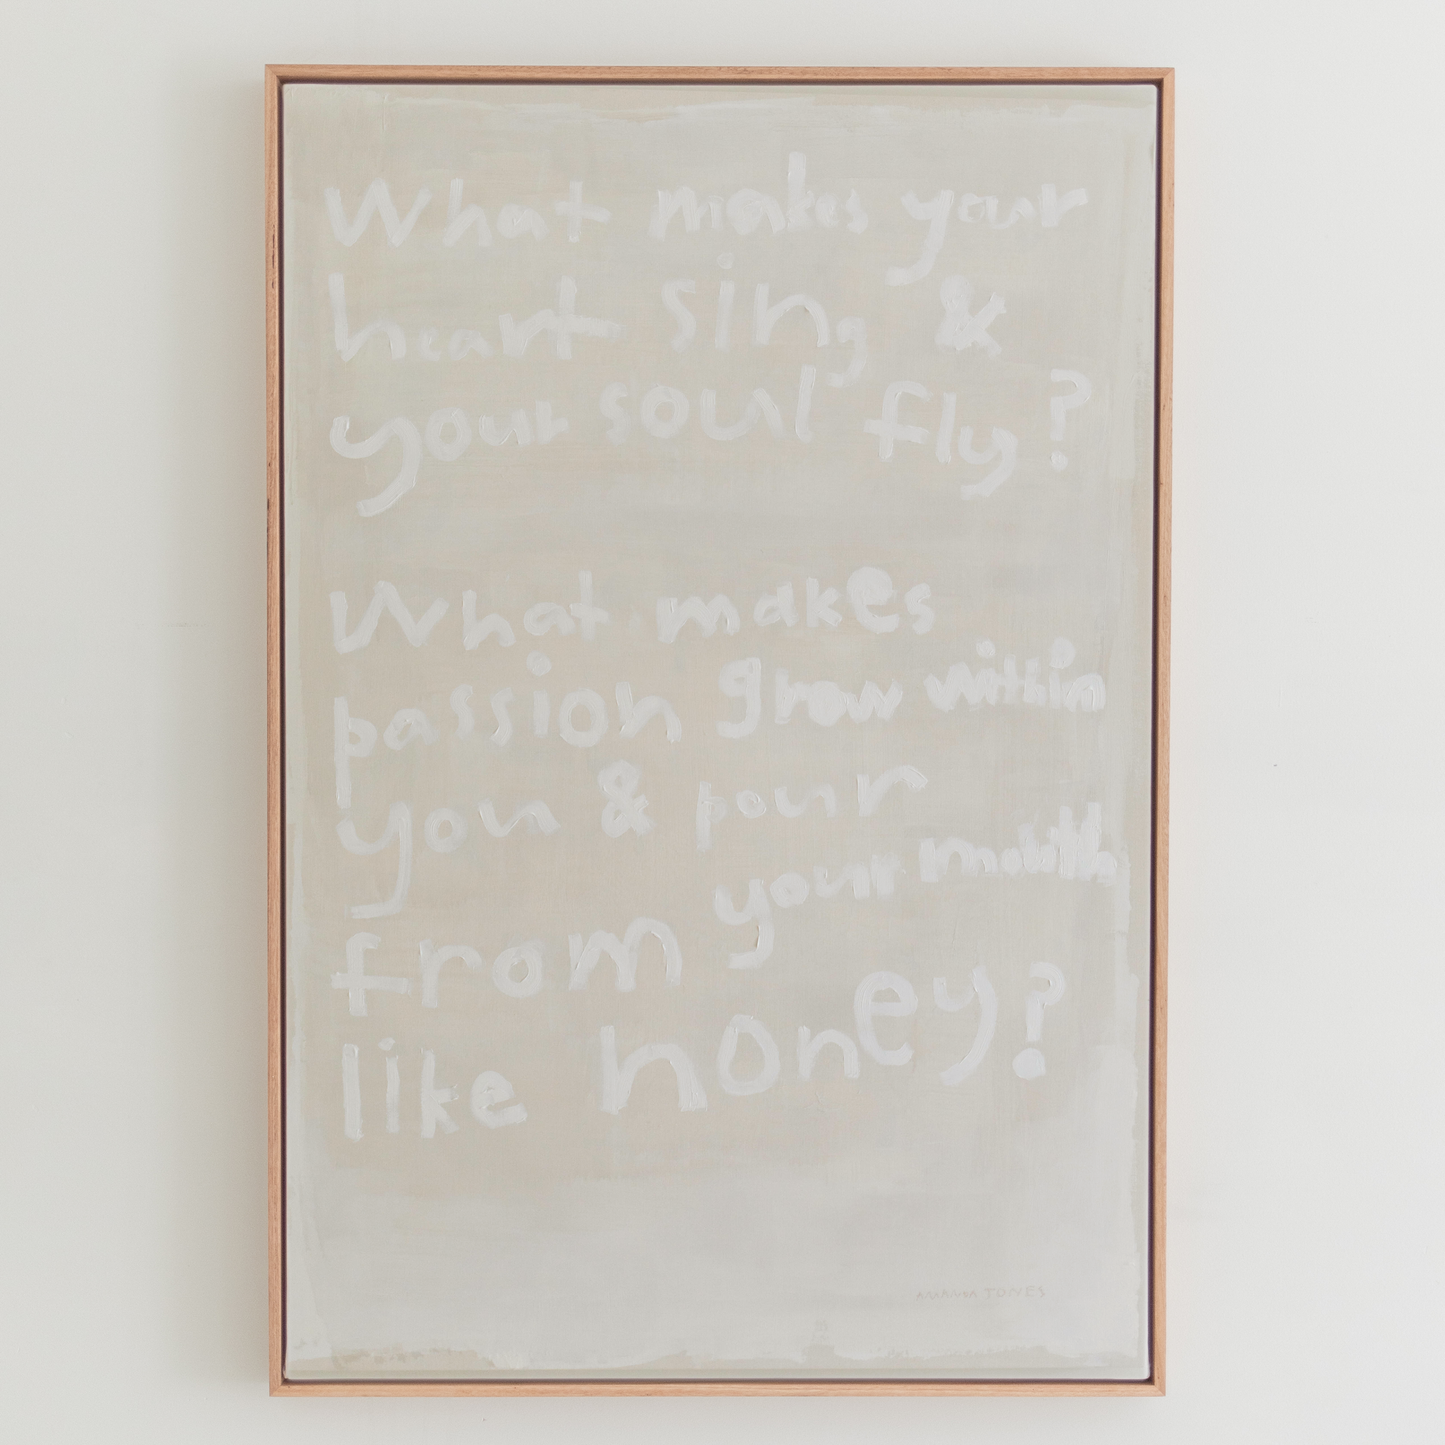 What makes your
heart sing &
your soul fly?
What makes
passion grow within
you & pour
from your mouth
like honey?